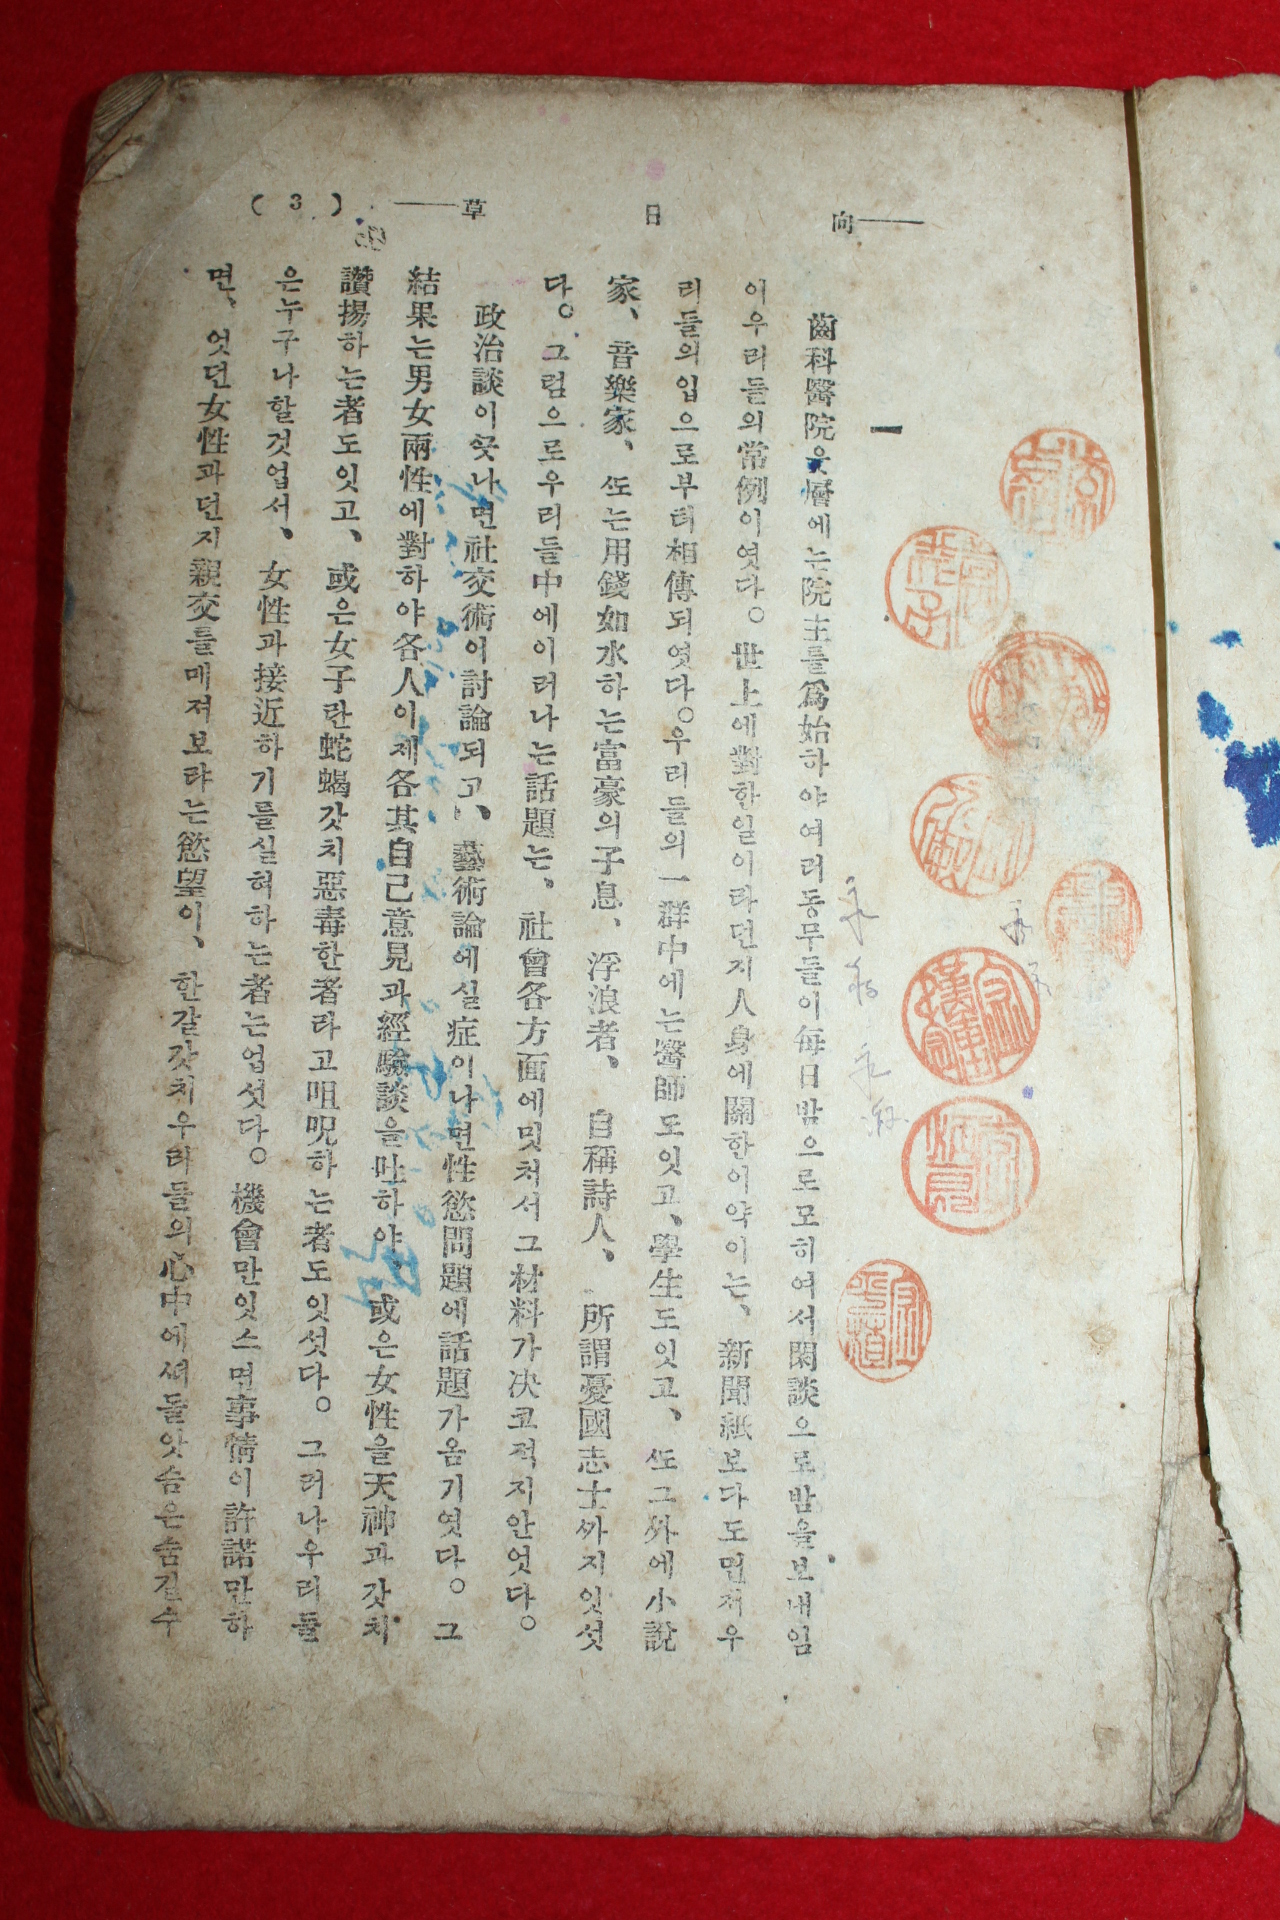 向日草
( 3 )
一
齒科醫院웃層에는院主를爲始하야여러동무들이每日밤으로모히여서閑談으로밤을보내임
이우리들의常例이엿다。世上에對한일이라던지人身에關한이약이는、新聞紙보다도먼저우
리들의입으로부터相傳되엿다。우리들의一群中에는醫師도잇고、學生도잇고、ᄯᅩ그外에小說
家、音樂家、ᄯᅩ는用錢如水하는富豪의子息、浮浪者、自稱詩人、所謂憂國志士ᄭᅡ지잇섯
다。그럼으로우리들中에이러나는話題는、社會各方面에밋처서그材料가决코적지안엇다。
政治談이ᄭᅳᆺ나면社交術이討論되고、藝術論에실症이나면性慾問題에話題가옴기엿다。그
結果는男女兩性에對하야各人이제各其自己意見과經驗談을吐하야、或은女性을天神과갓치
讚揚하는者도잇고、或은女子란蛇蝎갓치惡毒한者라고咀呪하는者도잇섯다。그러나우리들
은누구나할것업서、女性과接近하기를실혀하는者는업섯다。機會만잇스면事情이許諾만하
면、엇던女性과던지親交를매저보랴는慾望이、한갈갓치우리들의心中에ᄭᅥ돌앗슴은숨길수